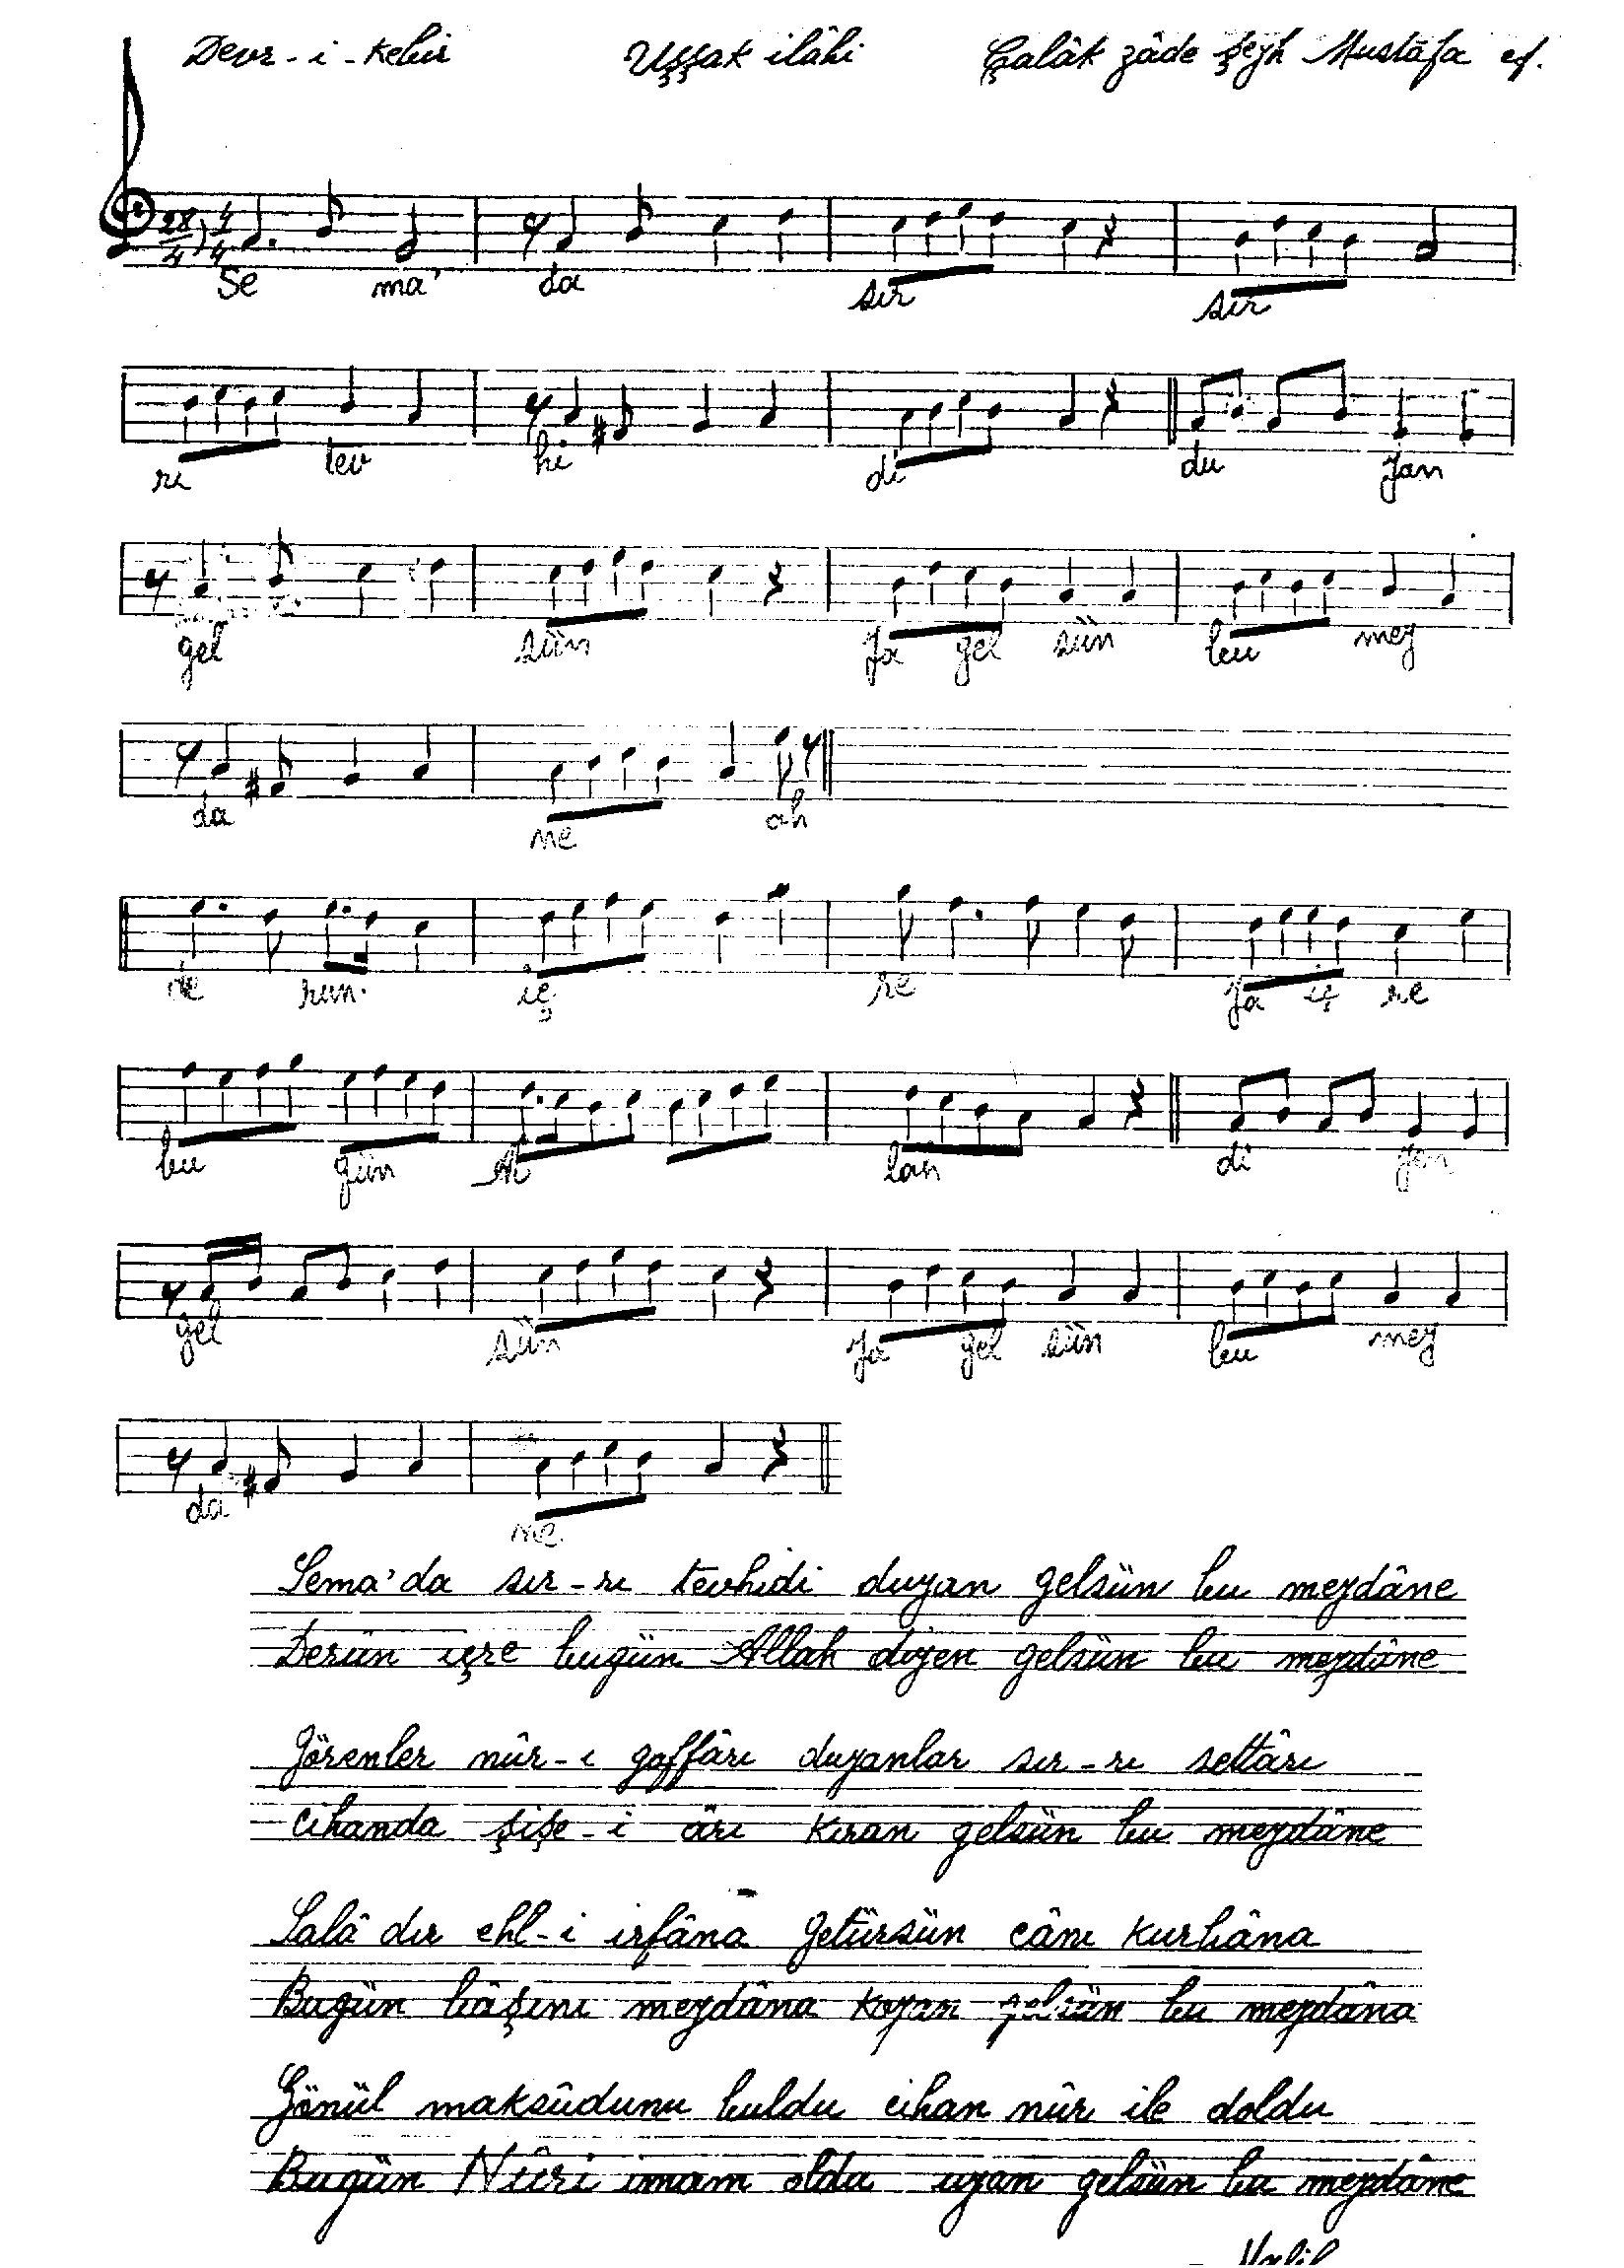 Devr-i-kebir Uşşak ilâhi Çalâk zâde Şeyh Mustâfa ef.
28/4 4/4
Se ma' da sır sır
rı tev hi di du yan
gel sün ya gel sün bu mey
da ne ah
de run iç re ya iç re
bu gün Al lah di yen
gel sün ya gel sün bu mey
da ne
Sema'da sır-rı tevhidi duyan gelsün bu meydâne
Derûn içre bugün Allah diyen gelsün bu meydâne
Görenler nûr-ı gaffârı duyanlar sır-rı settârı
cihanda şişe-i ârı kıran gelsün bu meydâne
Salâ dır ehl-i irfâna Getürsün cânı kurbâna
Bugün bâşını meydâna koyan gelsün bu meydâna
Gönül maksûdunu buldu cihan nûr ile doldu
Bugün Nûri imam oldu uyan gelsün bu meydâne